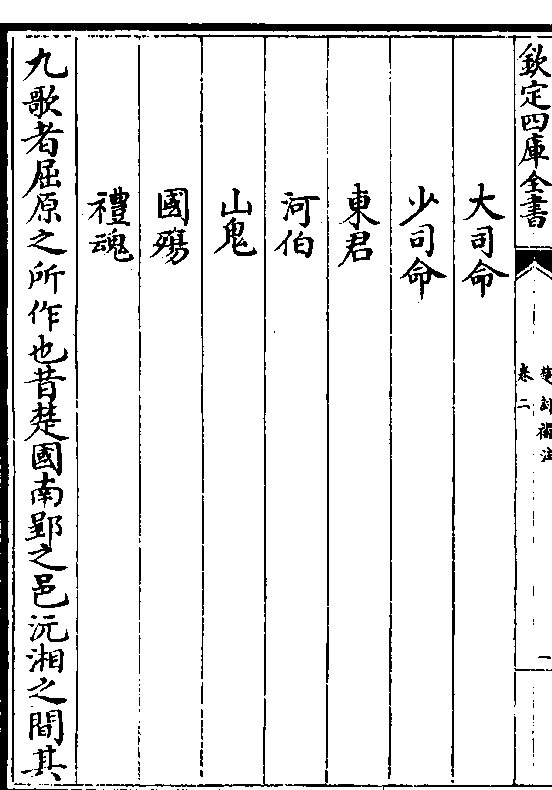 欽定四庫全書
楚辭補注
卷二
一
大司命
少司命
東君
河伯
山鬼
國殤
禮魂
九歌者屈原之所作也昔楚國南郢之邑沅湘之間其